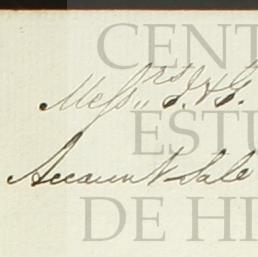 CENT
Messrs J & G.
ESTU
Account Sale
DE HI